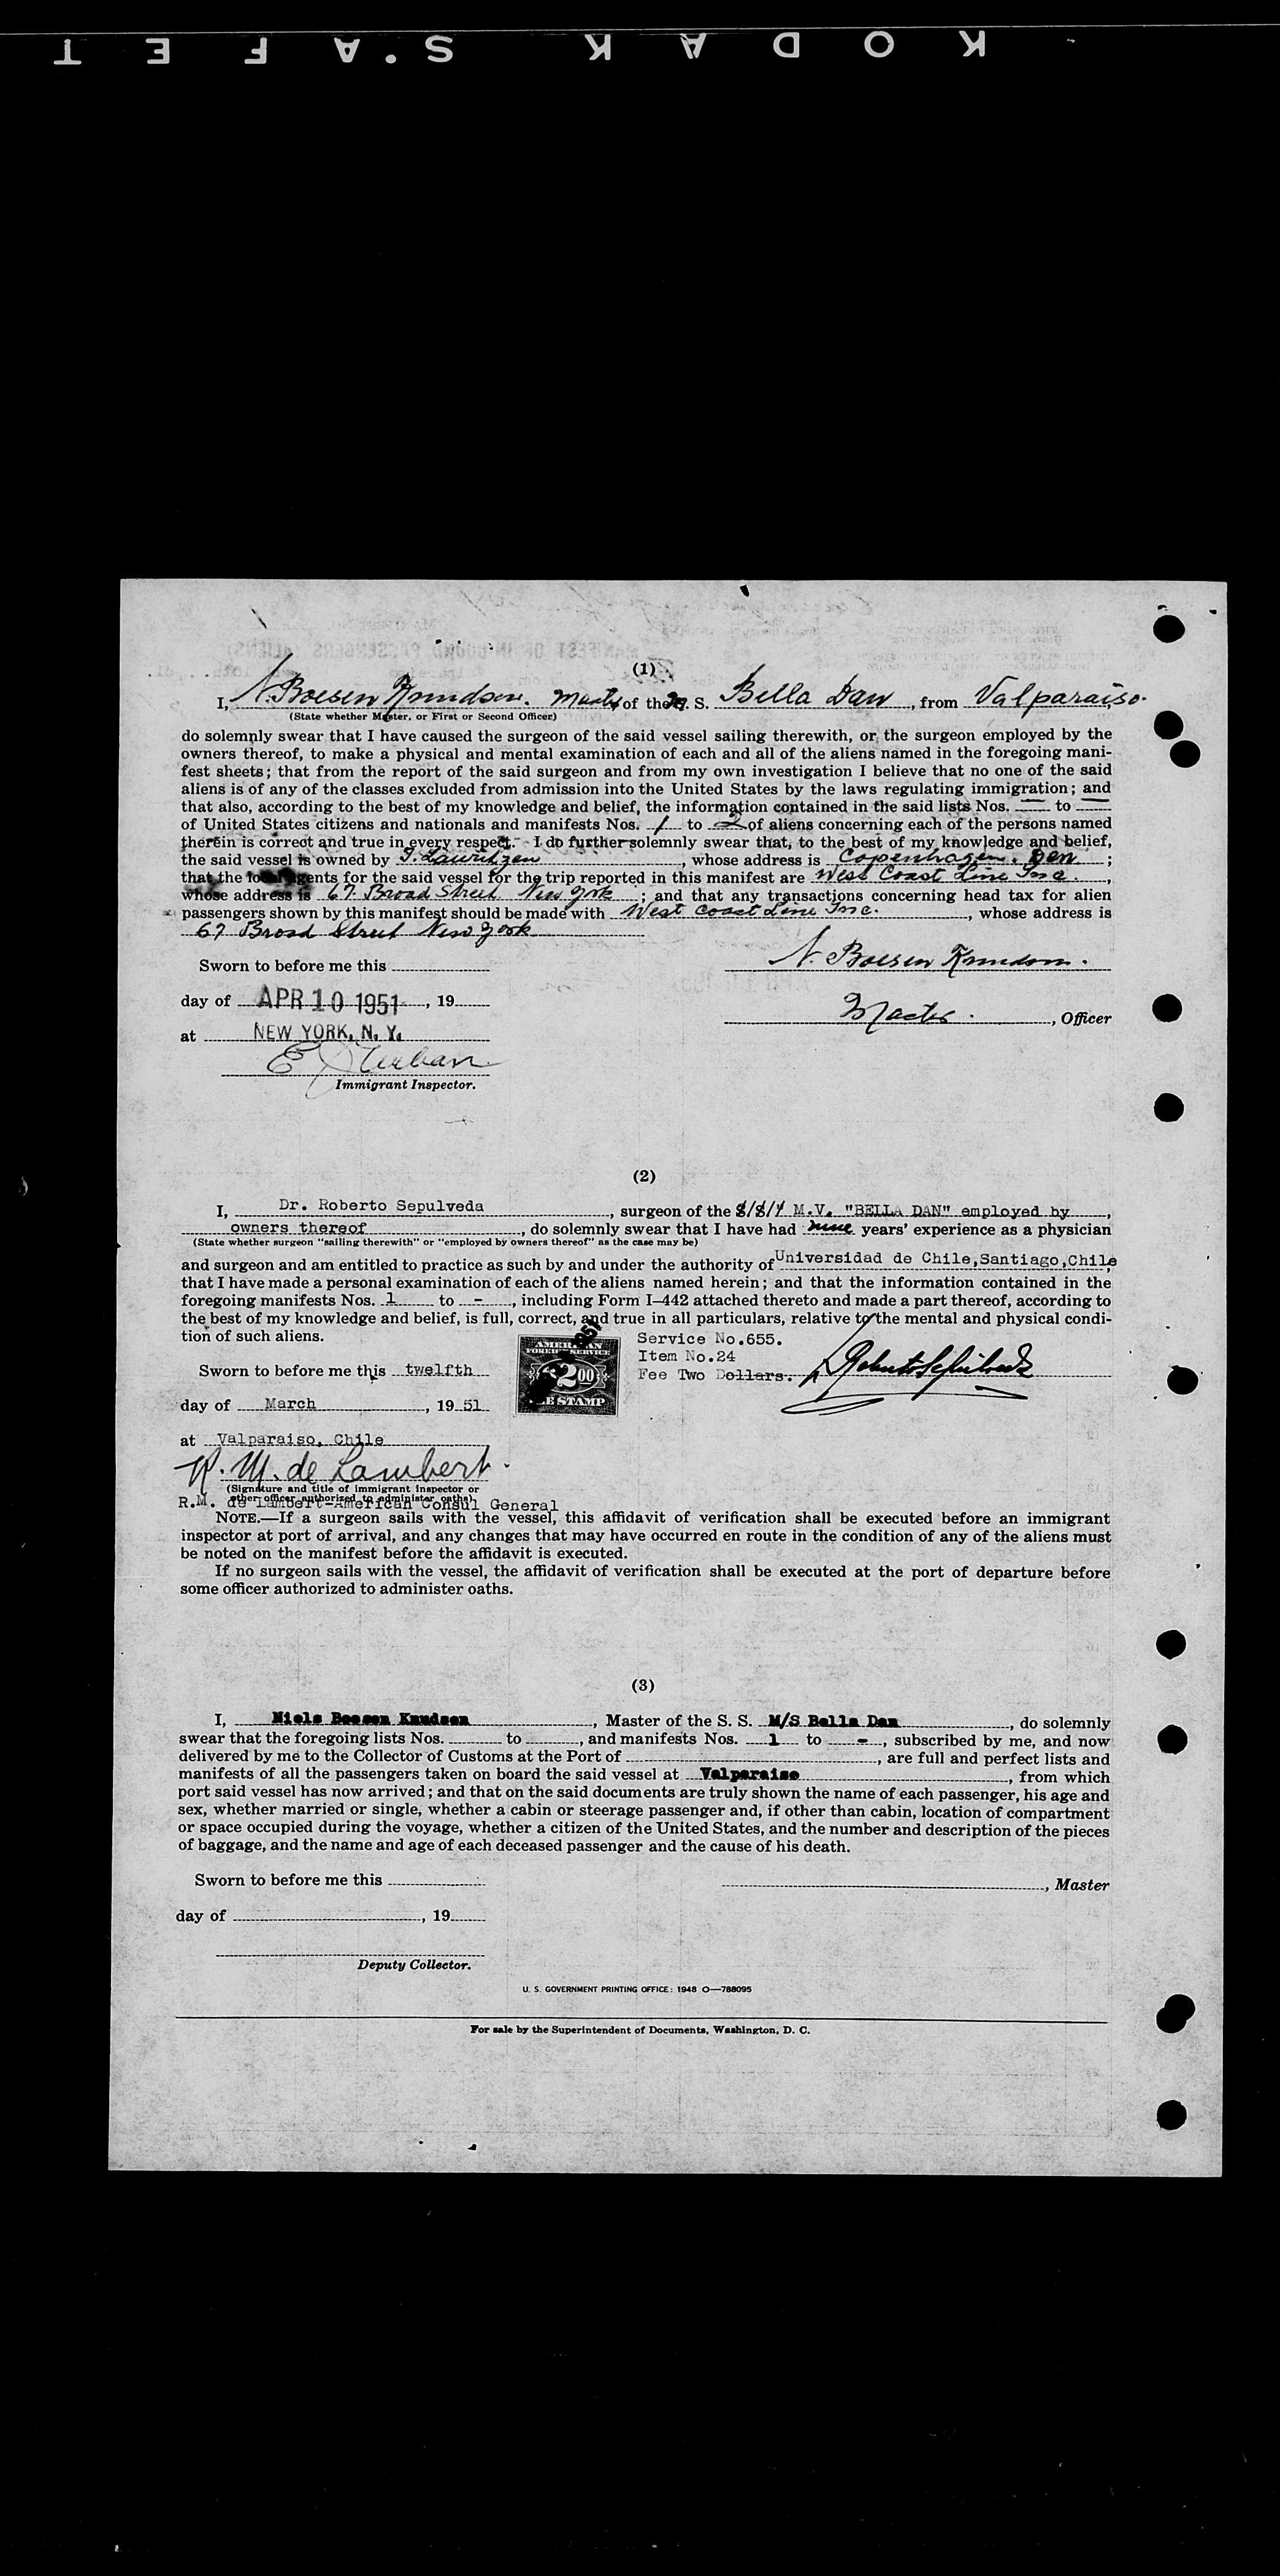 KODAK S'AFET
(1)
I, N. Boesen Knudsen. Master of the M. S. Bella Dan, from Valparaiso.
(State whether Master, or First or Second Officer)
do solemnly swear that I have caused the surgeon of the said vessel sailing therewith, or the surgeon employed by the
owners thereof, to make a physical and mental examination of each and all of the aliens named in the foregoing mani-
fest sheets; that from the report of the said surgeon and from my own investigation I believe that no one of the said
aliens is of any of the classes excluded from admission into the United States by the laws regulating immigration; and
that also, according to the best of my knowledge and belief, the information contained in the said lists Nos. — to —
of United States citizens and nationals and manifests Nos. 1 to 2 of aliens concerning each of the persons named
therein is correct and true in every respect. I do further solemnly swear that, to the best of my knowledge and belief,
the said vessel is owned by J. Lauritzen, whose address is Copenhagen. Den;
that the agents for the said vessel for the trip reported in this manifest are West Coast Line Inc.,
whose address is 67 Broad Street New York; and that any transactions concerning head tax for alien
passengers shown by this manifest should be made with West Coast Line Inc., whose address is
67 Broad Street New York
Sworn to before me this
N. Boesen Knudsen.
day of APR 10 1951, 19
Master., Officer
at NEW YORK, N. Y.
E J Urban
Immigrant Inspector.
(2)
I, Dr. Roberto Sepulveda, surgeon of the S/S/ M.V. "BELLA DAN" employed by,
owners thereof, do solemnly swear that I have had nine years' experience as a physician
(State whether surgeon "sailing therewith" or "employed by owners thereof" as the case may be)
and surgeon and am entitled to practice as such by and under the authority of Universidad de Chile,Santiago,Chile,
that I have made a personal examination of each of the aliens named herein; and that the information contained in the
foregoing manifests Nos. 1 to -, including Form I-442 attached thereto and made a part thereof, according to
the best of my knowledge and belief, is full, correct, and true in all particulars, relative to the mental and physical condi-
tion of such aliens.
AMERICAN
FOREIGN SERVICE
$2.00
FEE STAMP
Service No.655.
Item No.24
Fee Two Dollars.
Roberto Sepulveda
Sworn to before me this twelfth
day of March, 19 51
at Valparaiso, Chile
R. M. de Lambert.
(Signature and title of immigrant inspector or
other officer authorized to administer oaths)
R.M. de Lambert-American Consul General
NOTE.—If a surgeon sails with the vessel, this affidavit of verification shall be executed before an immigrant
inspector at port of arrival, and any changes that may have occurred en route in the condition of any of the aliens must
be noted on the manifest before the affidavit is executed.
If no surgeon sails with the vessel, the affidavit of verification shall be executed at the port of departure before
some officer authorized to administer oaths.
(3)
I, Niels Boesen Knudsen, Master of the S. S. M/S Bella Dan, do solemnly
swear that the foregoing lists Nos. to, and manifests Nos. 1 to -, subscribed by me, and now
delivered by me to the Collector of Customs at the Port of, are full and perfect lists and
manifests of all the passengers taken on board the said vessel at Valparaiso, from which
port said vessel has now arrived; and that on the said documents are truly shown the name of each passenger, his age and
sex, whether married or single, whether a cabin or steerage passenger and, if other than cabin, location of compartment
or space occupied during the voyage, whether a citizen of the United States, and the number and description of the pieces
of baggage, and the name and age of each deceased passenger and the cause of his death.
Sworn to before me this
, Master
day of, 19
Deputy Collector.
U. S. GOVERNMENT PRINTING OFFICE: 1948 O—788095
For sale by the Superintendent of Documents, Washington, D. C.